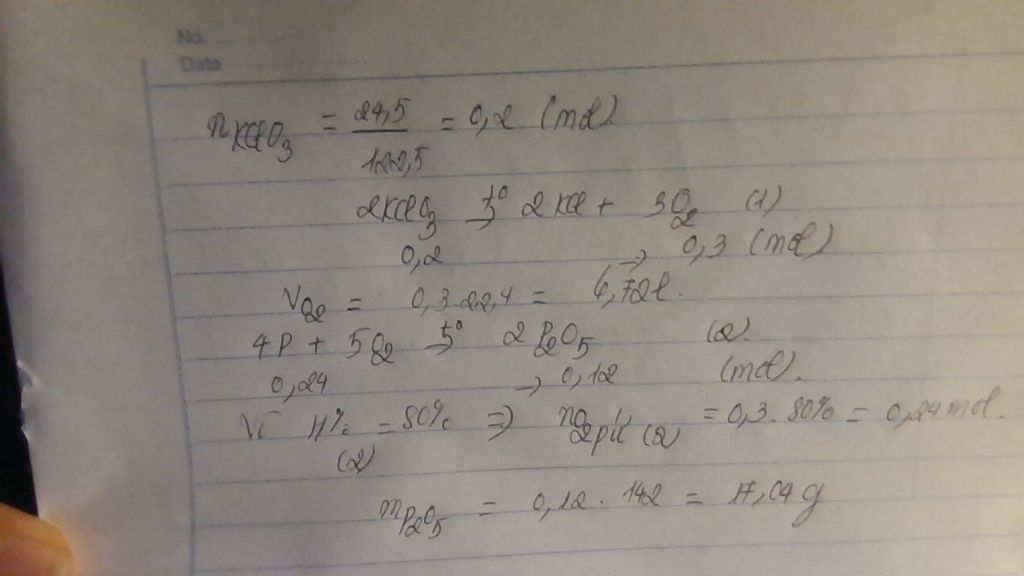 No.
Date
nKClO3 = 24,5 / 122,5 = 0,2 (mol)
2KClO3 t° → 2KCl + 3O2 (1)
0,2 → 0,3 (mol)
VO2 = 0,3.22,4 = 6,72l.
4P + 5O2 t° → 2P2O5 (2).
0,24 → 0,12 (mol).
Vì H% (2) = 80% => nO2 pứ (2) = 0,3.80% = 0,24 mol.
mP2O5 = 0,12.142 = 17,04 g